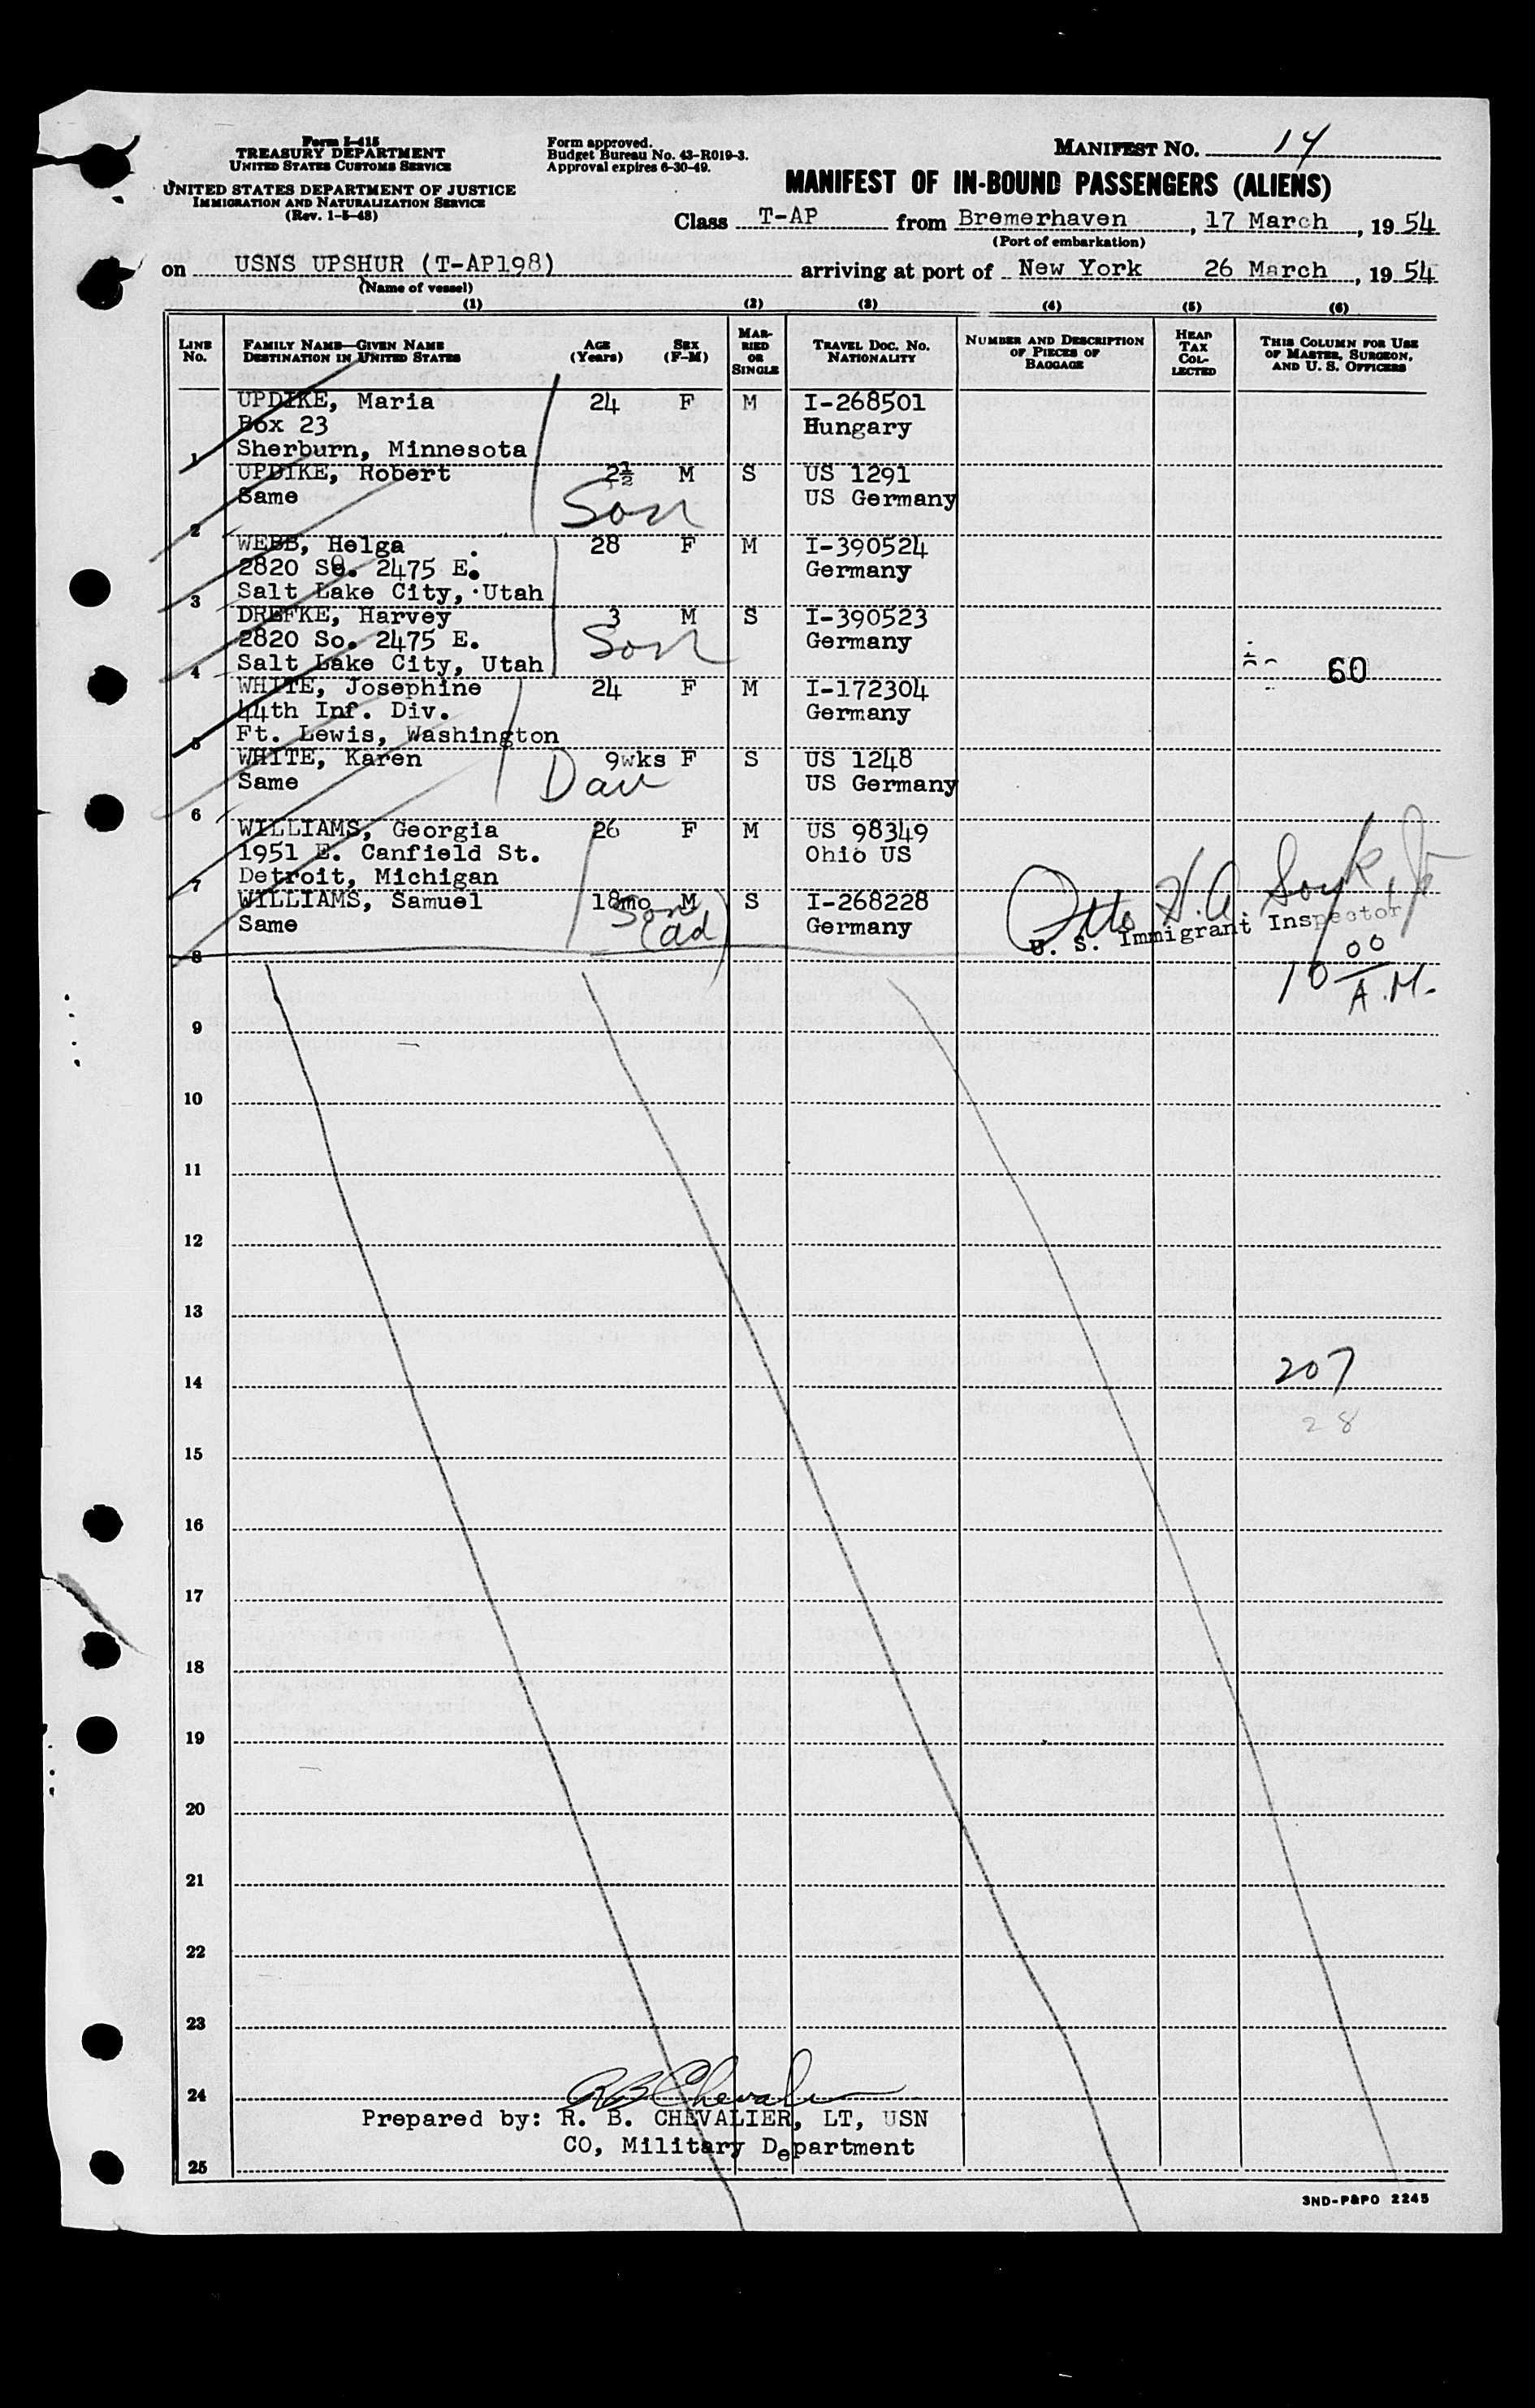 Form I-415
TREASURY DEPARTMENT
UNITED STATES CUSTOMS SERVICE
UNITED STATES DEPARTMENT OF JUSTICE
IMMIGRATION AND NATURALIZATION SERVICE
(Rev. 1-5-48)
Form approved.
Budget Bureau No. 43-R019-3.
Approval expires 6-30-49.
MANIFEST NO. 14
MANIFEST OF IN-BOUND PASSENGERS (ALIENS)
Class T-AP from Bremerhaven, 17 March, 1954
(Port of embarkation)
on USNS UPSHUR (T-AP198) arriving at port of New York 26 March, 1954
(Name of vessel)
(1) (2) (3) (4) (5) (6)
LINE No. FAMILY NAME—GIVEN NAME DESTINATION IN UNITED STATES AGE (Years) SEX (F-M) MARRIED OR SINGLE TRAVEL DOC. NO. NATIONALITY NUMBER AND DESCRIPTION OF PIECES OF BAGGAGE HEAD TAX COLLECTED THIS COLUMN FOR USE OF MASTER, SURGEON, AND U. S. OFFICERS
UPDIKE, Maria 24 F M I-268501
Box 23 Hungary
1 Sherburn, Minnesota
UPDIKE, Robert 2½ M S US 1291
Same Son US Germany
2
WEBB, Helga 28 F M I-390524
2820 So. 2475 E. Germany
3 Salt Lake City, Utah
DREFKE, Harvey 3 M S I-390523
2820 So. 2475 E. Son Germany
4 Salt Lake City, Utah 60
WHITE, Josephine 24 F M I-172304
44th Inf. Div. Germany
5 Ft. Lewis, Washington
WHITE, Karen 9wks F S US 1248
Same Dau US Germany
6
WILLIAMS, Georgia 26 F M US 98349
1951 E. Canfield St. Ohio US
7 Detroit, Michigan
WILLIAMS, Samuel 18mo M S I-268228
Same Son (ad) Germany
Otto H. A. Soyk, Jr
U. S. Immigrant Inspector
8
10 00 A.M.
9
10
11
12
13
14 207
28
15
16
17
18
19
20
21
22
23
24 RB Chevalier
Prepared by: R. B. CHEVALIER, LT, USN
CO, Military Department
25
3ND-P&PO 2245